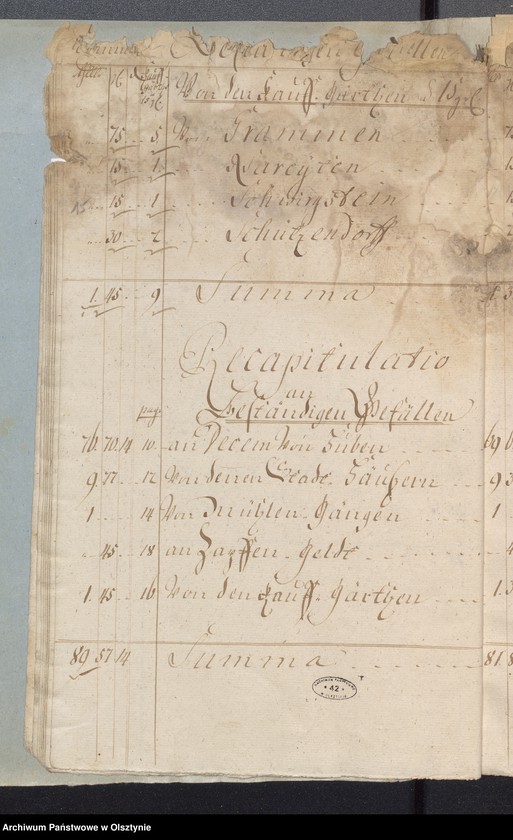 Von den Kauff. Gärthen à 15 gr
75 5 Von Trammen
15 1 Kareyten
15 1 Schwogstein
30 2 Schützendorff
1 45 9 Summa
Recapitulatio
an
Beständigen Gefällen
pag.
76 70 14 10 an Decem von Huben
9 77 12 Von denen Stadt Häusern
1 14 Von Mühlen Gängen
45 18 an Zapffen Geldt
1 45 16 Von den Kauff. Gärthen
89 57 14 Summa
42
Archiwum Państwowe w Olsztynie